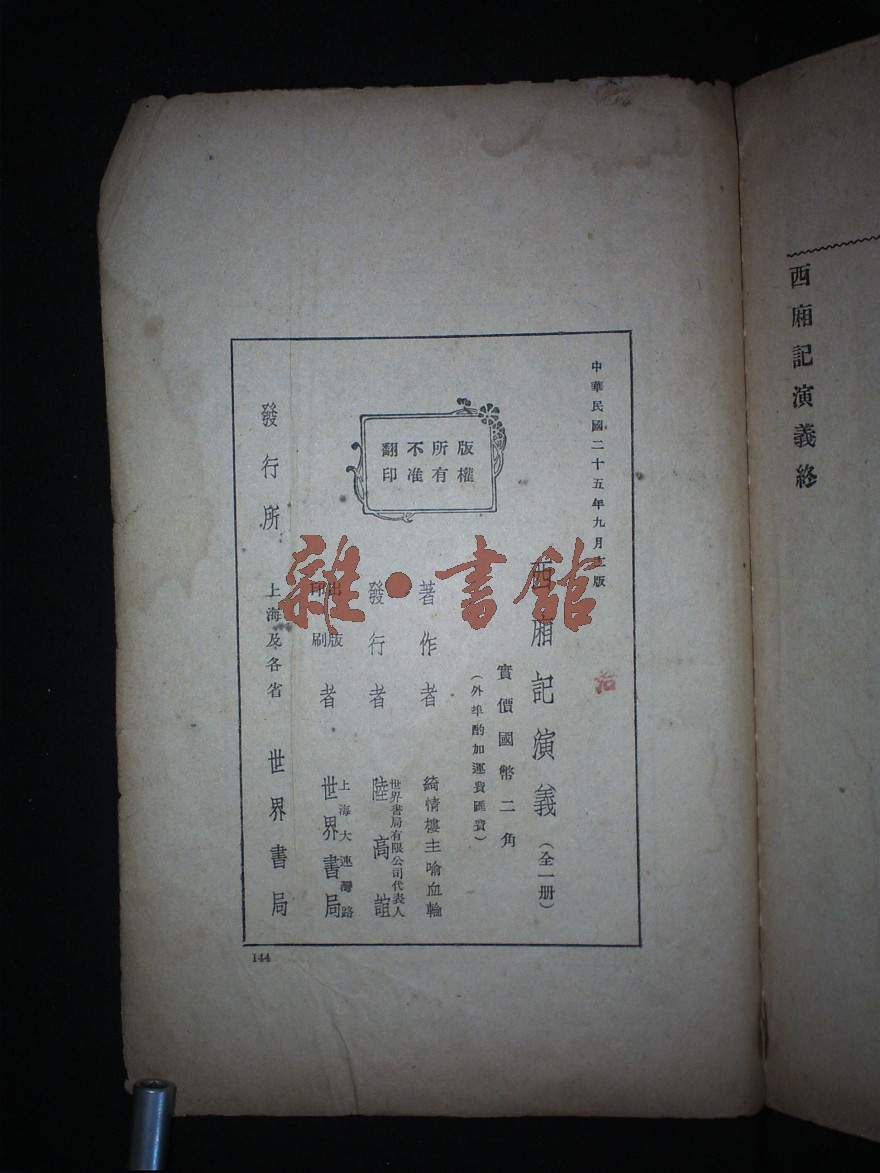 西廂記演義終
中華民國二十五年九月 版
西廂記演義(全一册)
實價國幣二角
(外埠酌加運費匯費)
版權
所有
不准
翻印
著作者 綺情樓主喻血輪
發行者 世界書局有限公司代表人 陸高誼
出版
印刷
者 上海大連灣路
世界書局
發行所 上海及各省 世界書局
144
雜·書館